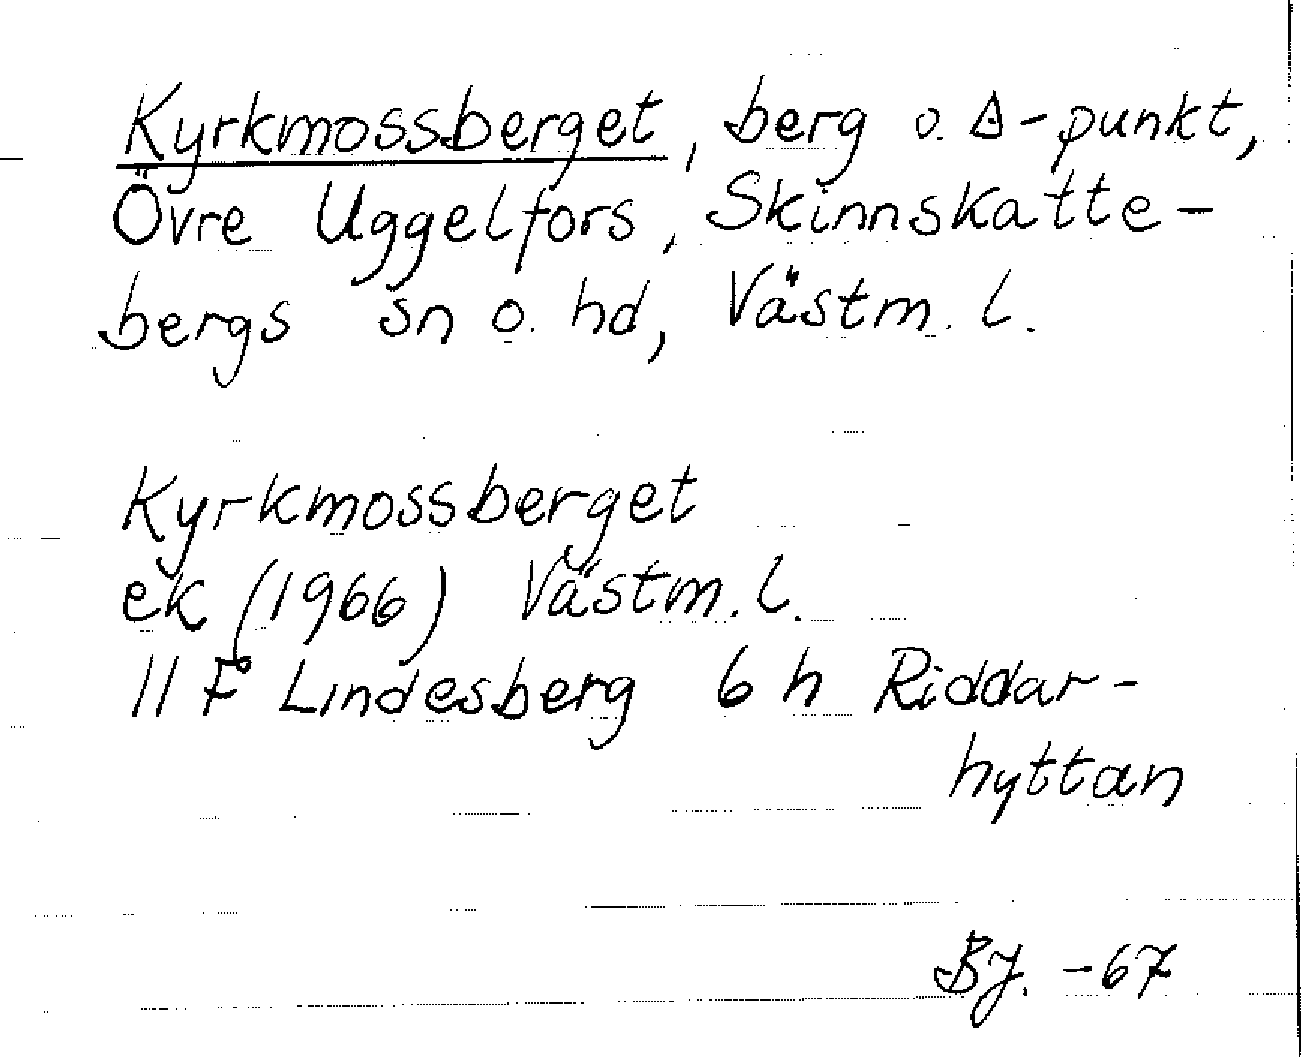 Kyrkmossberget, berg o. Δ-punkt,
Övre Uggelfors, Skinnskatte-
bergs sn o. hd, Västm. l.
Kyrkmossberget
ek (1966) Västm. l.
11 F Lindesberg 6 h Riddar-
hyttan
BJ. -67